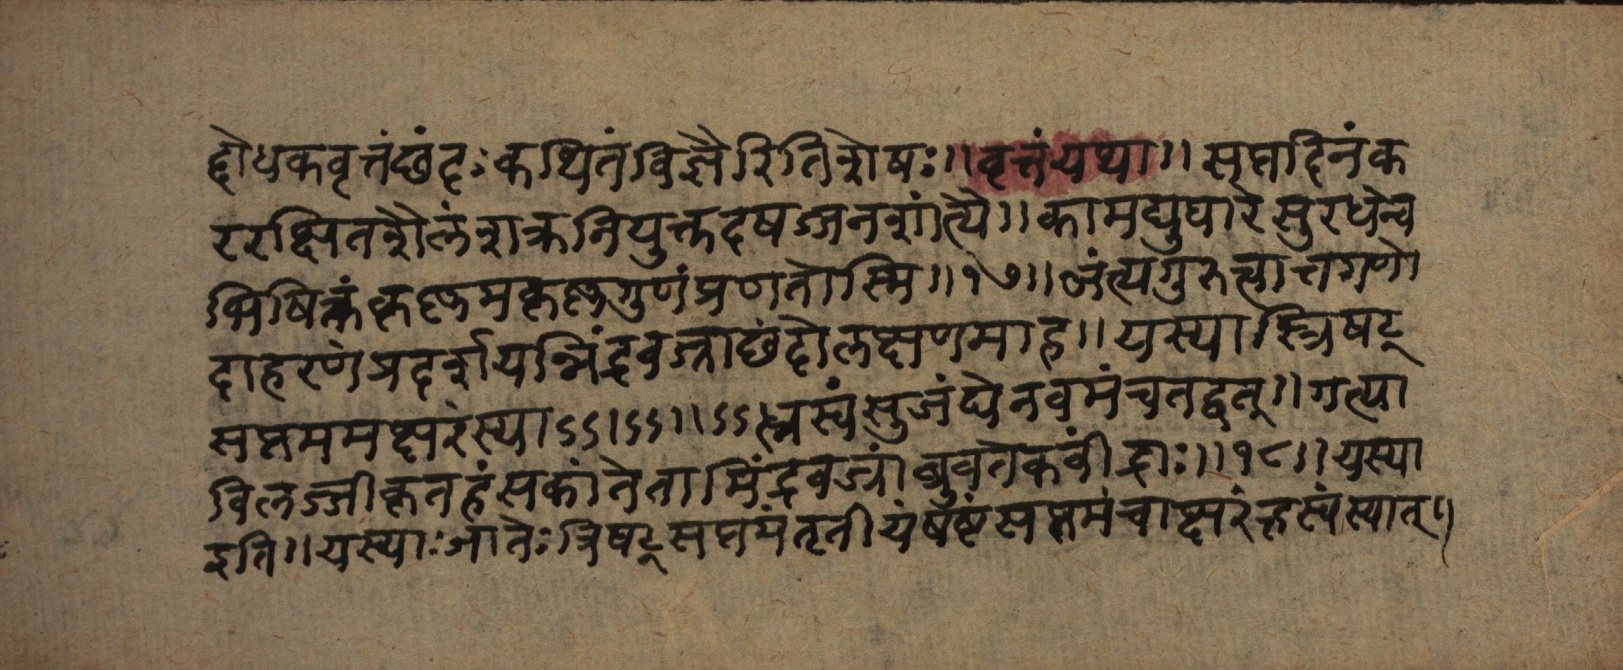 दोधकवृत्तंछंदः कथितंविज्ञैरितिशेषः॥ वृत्तंयथा॥ सप्तदिनंक
ररक्षितशैलंशक्रनियुक्तदषज्जनशांत्यै॥ कामद्युघारेसुरधेन्व
भिषिक्तंकृष्णमकृष्णगुणंप्रणतोस्मि॥१७॥ अंत्यगुरुत्वात्तगणो
दाहरणंप्रदर्शयन्निंद्रवज्राछंदोलक्षणमाह॥ यस्यास्त्रिषट्
सप्तममक्षरंस्याऽऽ।ऽऽ।।ऽऽह्रस्वंसुजंघेनवमंचतद्वत्॥ गत्या
विलज्जीकृतहंसकांतेतामिंद्रवज्रांब्रुवतेकवींद्राः॥१८॥ यस्या
इति॥ यस्याःजातेःत्रिषट्सप्तमंतृतीयंषष्टंसप्तमंचाक्षरंह्रस्वंस्यात्॥